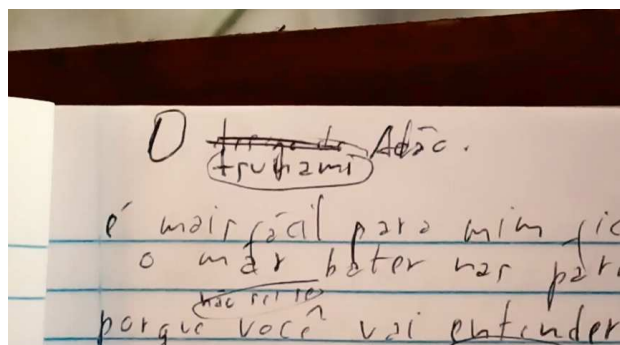 O Adão.
tsunami
é mais fácil para mim
o mar bater nas
não sei se
porque você vai entender